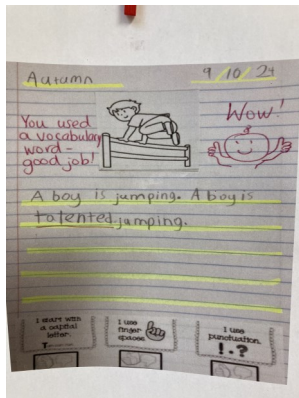 Autumn
9/10/24
You used
a vocabulary
word -
good job!
Wow!
A boy is jumping. A boy is
totented jumping.
I start with
a capital
letter.
I use
finger
spaces.
I use
punctuation.
! . ?